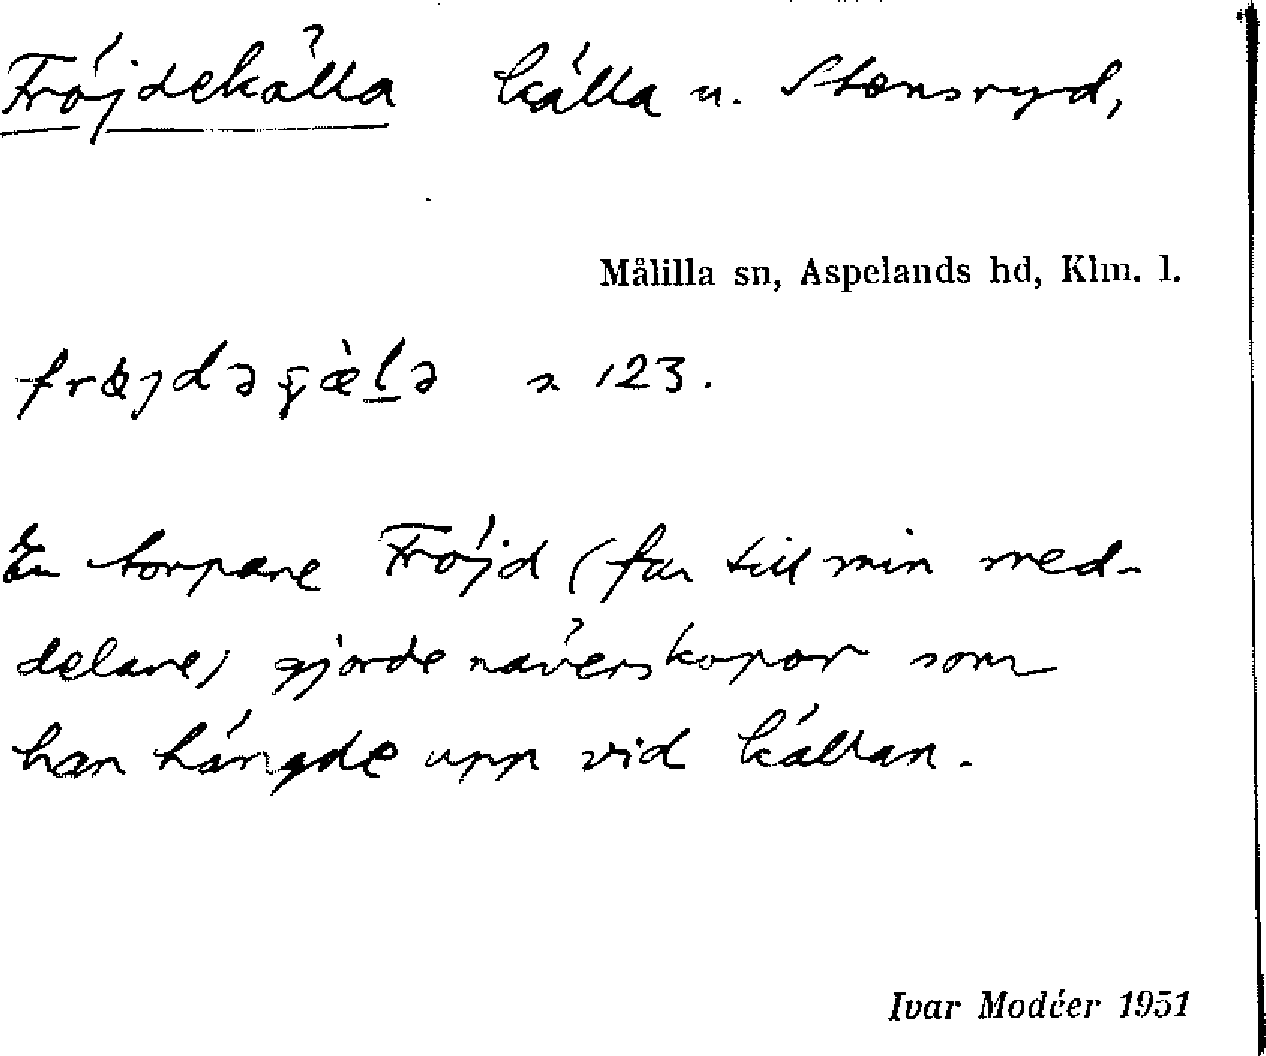 Fröjdekälla källa u. Stensryd,
Målilla sn, Aspelands hd, Klm. l.
123.
En torpare Fröjd (far till min med-
delare) gjorde näverskopor som
han hängde upp vid källan.
Ivar Modéer 1951